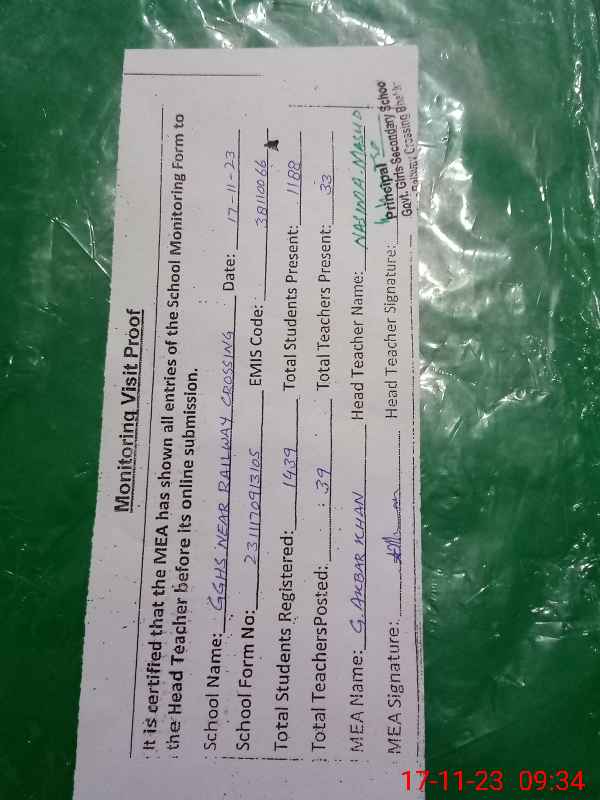 Monitoring Visit Proof
It is certified that the MEA has shown all entries of the School Monitoring Form to
the Head Teacher before its online submission.
School Name: GGHS NEAR RAILWAY CROSSING Date: 17-11-23
School Form No: 2311170913105 EMIS Code: 38110066
Total Students Registered: 1439 Total Students Present: 1188
Total TeachersPosted: 39 Total Teachers Present: 33
MEA Name: G. AKBAR KHAN Head Teacher Name: NAJMA MASUD
MEA Signature: Head Teacher Signature:
Principal
Govt. Girls Secondary School
Railway Crossing
17-11-23 09:34